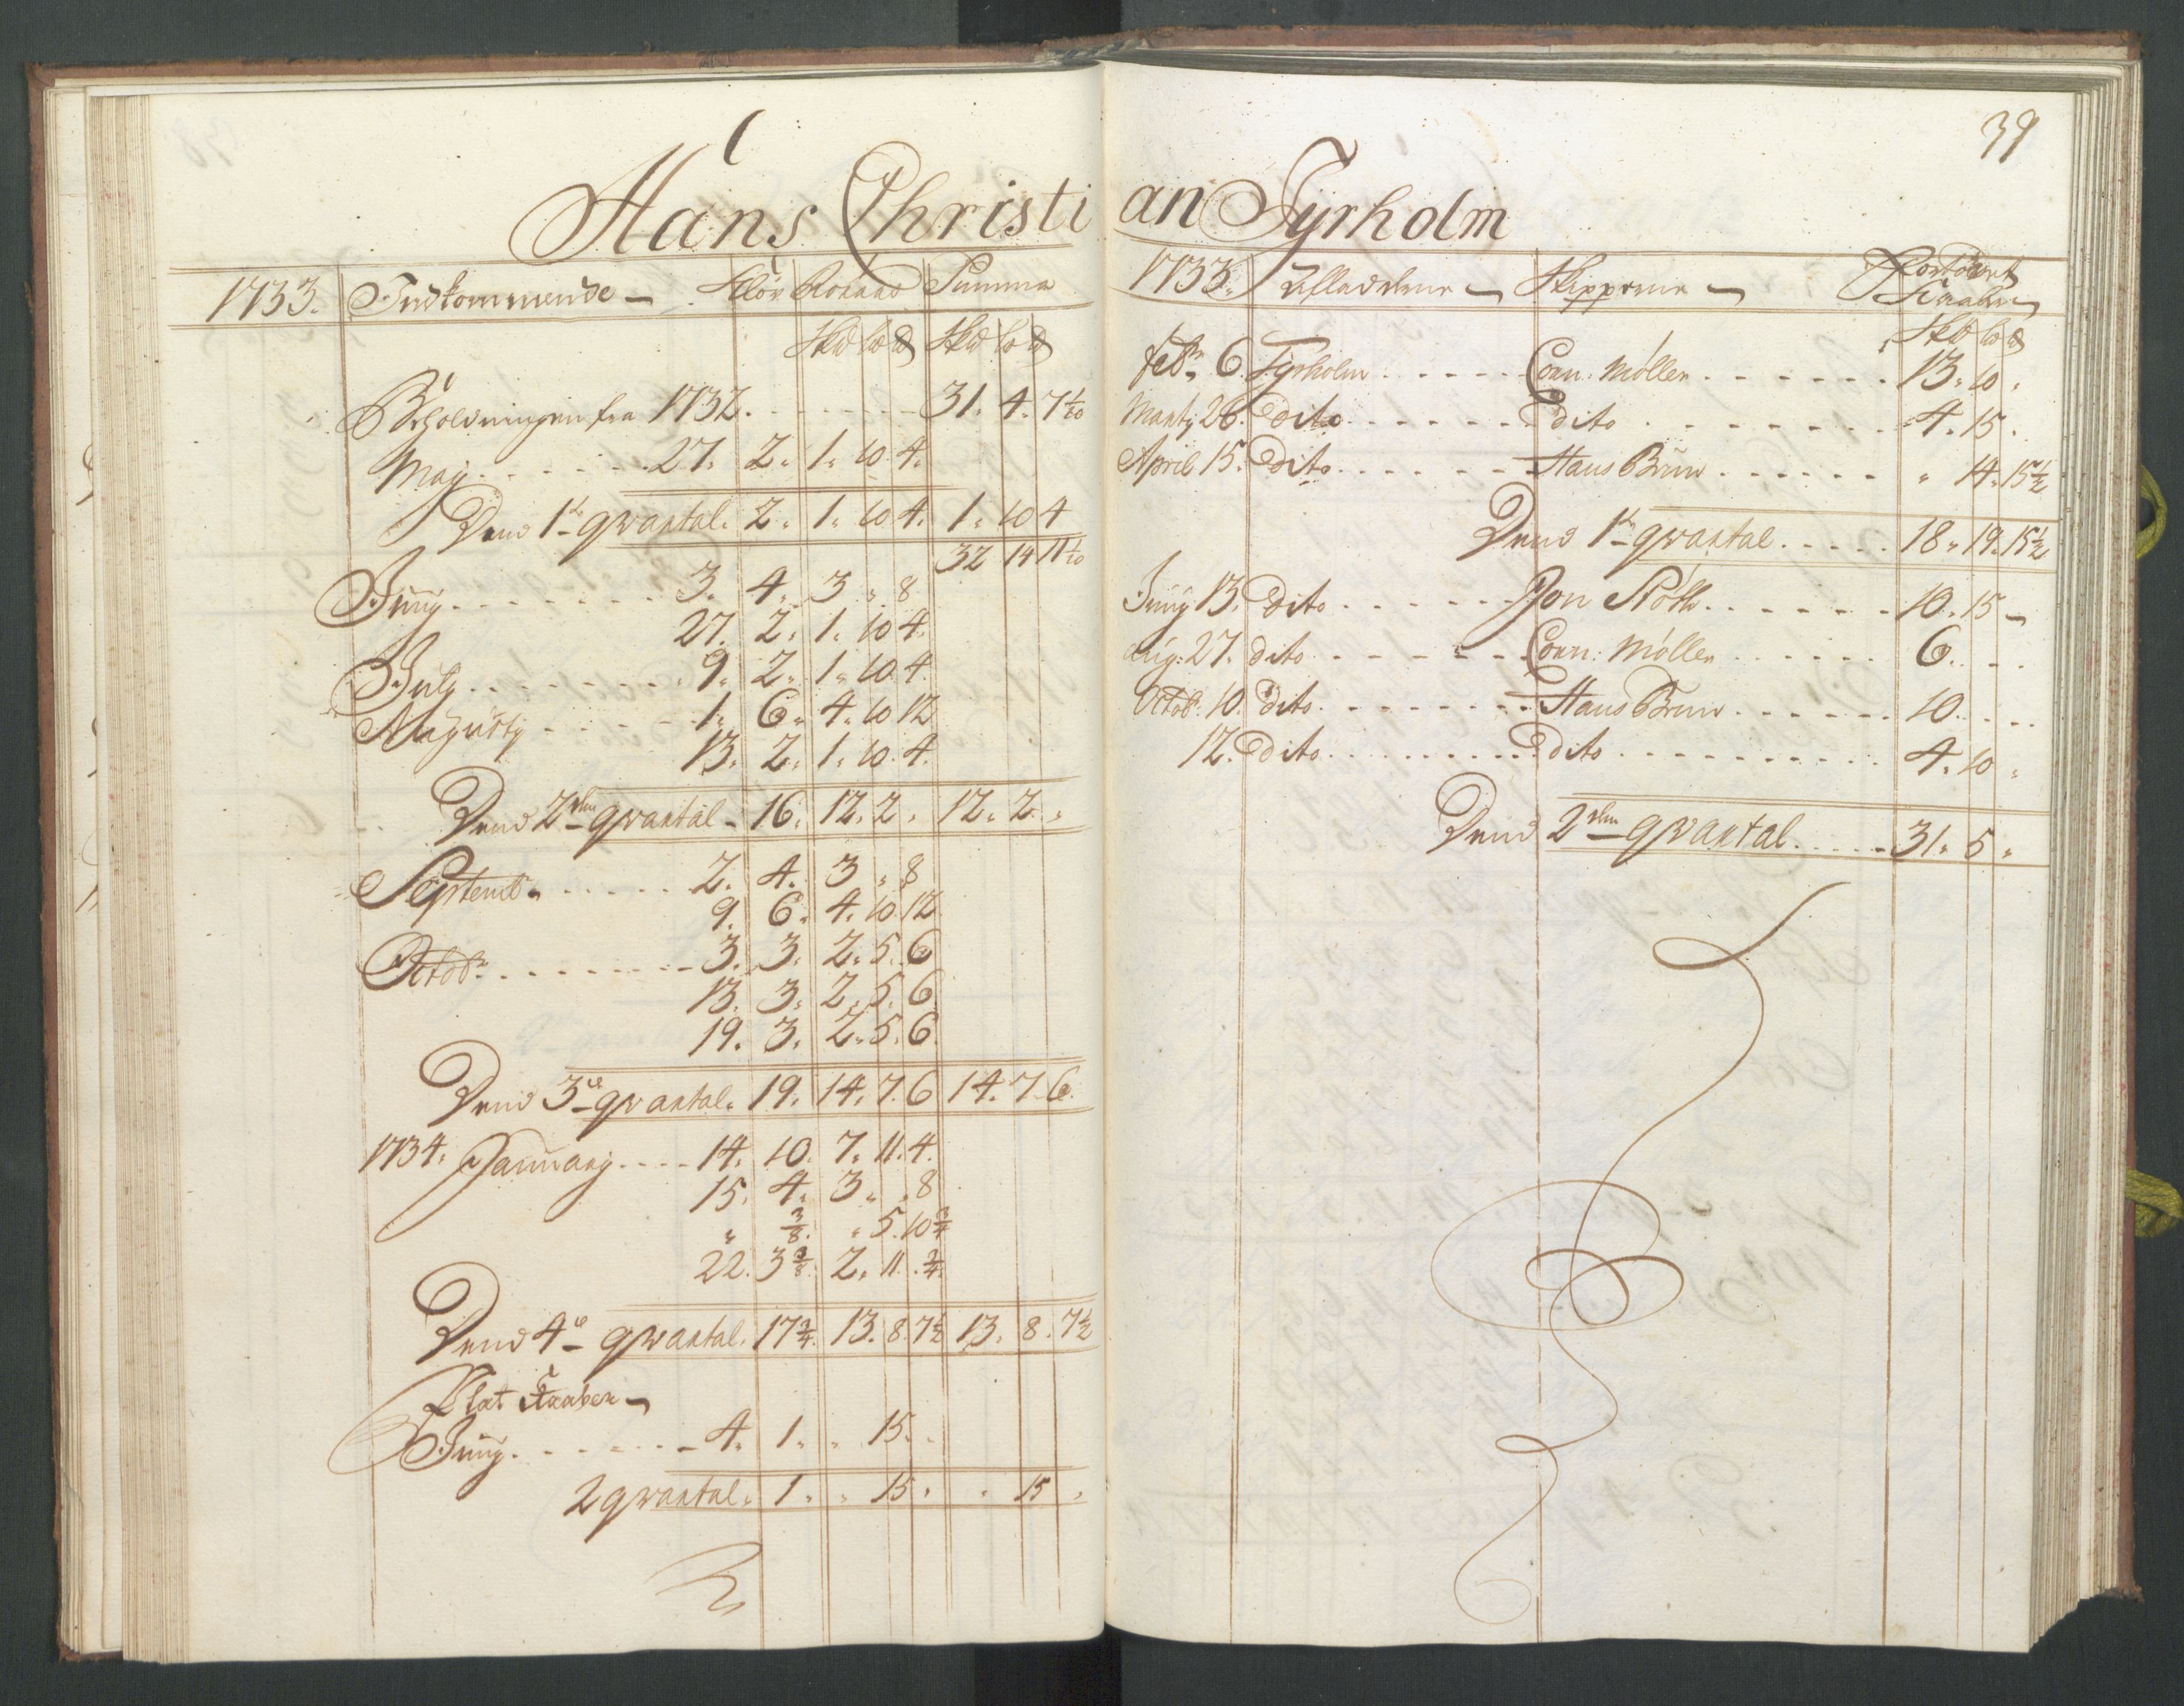 39
Hans Christian Tyrholm
1733. Indkommende - Slör Kobber Summa
Beholdningen fra 1732. 31. 4. 7 1/20
Maj 27. 2. 1. 10. 4.
Dend 1te qvartal. 2. 1. 10 4. 1. 10 4
32 14 11 1/20
Junij 3. 4. 3 . 8
27. 2. 1. 10 4.
July 9. 2. 1. 10. 4.
Augustij 1. 6. 4. 10 12
13. 2. 1. 10. 4.
Dend 2den qvartal 16. 12. 2. 12. 2.
Septembr. 2. 4. 3 . 8
9. 6. 4. 10. 12
Octobr. 3. 3. 2. 5. 6
13. 3. 2. 5. 6
19. 3. 2. 5. 6
Dend 3e qvartal. 19. 14. 7. 6 14. 7. 6.
1734. Januarij 14. 10. 7. 11. 4.
15. 4. 3 . . 8
" 3/8. " 5. 10 3/4
22. 3 3/8. 2. 11. 3/4
Dend 4e qvartal. 17 3/4. 13. 8. 7 1/2 13. 8. 7 1/2
Plat Kaaber
Junij 4. 1. . 15.
2 qvartal. 1. . 15. . 15.
1733. Afladerne - Skipperne -
Febr. 6. Tyrholm Corn: Møller 13. 10.
Martij 26. Dito dito 4. 15.
April 15. Dito Hans Brun " 14. 15 1/2
Dend 1te qvartal 18. 19. 15 1/2
Junij 13. Dito Jon 10. 15 -
Aug: 27. dito Corn: Møller 6.
Octobr. 10. dito Hans Brun 10.
12. dito dito 4. 10
Dend 2den qvartal 31. 5.